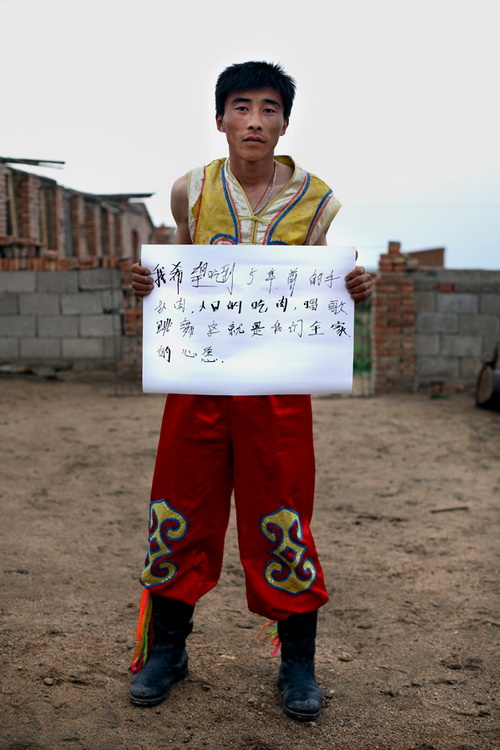 我希望吃到5年前的手
扒肉，大口的吃肉，唱歌
跳舞这就是我们全家
的心愿.